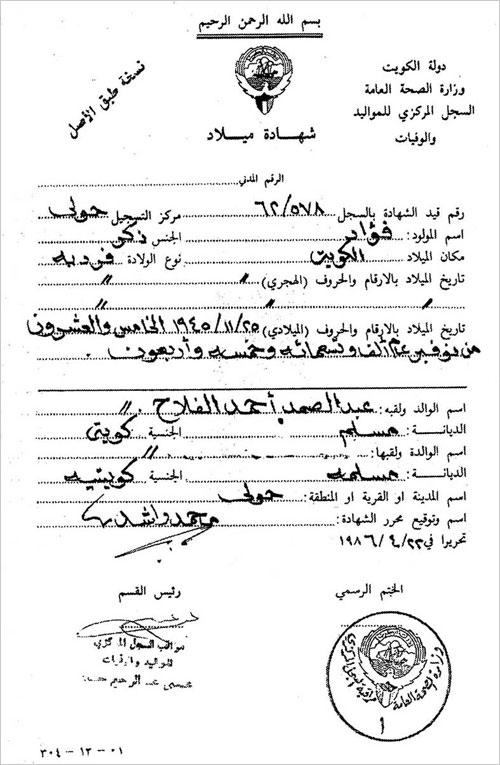 بسم الله الرحمن الرحيم
دولة الكويت
وزارة الصحة العامة
السجل المركزي للمواليد
والوفيات
نسخة طبق الأصل
شهادة ميلاد
الرقم المدني
رقم قيد الشهادة بالسجل ٦٢/٥٧٨ مركز التسجيل حولي
اسم المولود: فؤاد الجنس ذكر
مكان الميلاد الكويت نوع الولادة فرديه
تاريخ الميلاد بالارقام والحروف (الهجري) " "
" "
تاريخ الميلاد بالارقام والحروف (الميلادي) ١٩٤٥/١١/٢٥ الخامس والعشرون
من نوفمبر عام ألف وتسعمائه وخمسه وأربعون
اسم الوالد ولقبه: عبدالصمد أحمد الفلاح "
الديانة: مسلم الجنسية كويتي
اسم الوالدة ولقبها: "
الديانة: مسلمه الجنسية كويتيه
اسم المدينة او القرية او المنطقة: حولي
اسم وتوقيع محرر الشهادة: محمد راشد
تحريرا في ١٩٨٦/٤/٢٢
الختم الرسمي
رئيس القسم
مراقب السجل المركزي
للمواليد والوفيات
وزارة الصحة العامة
٣٠٤ - ١٢ - ٠١